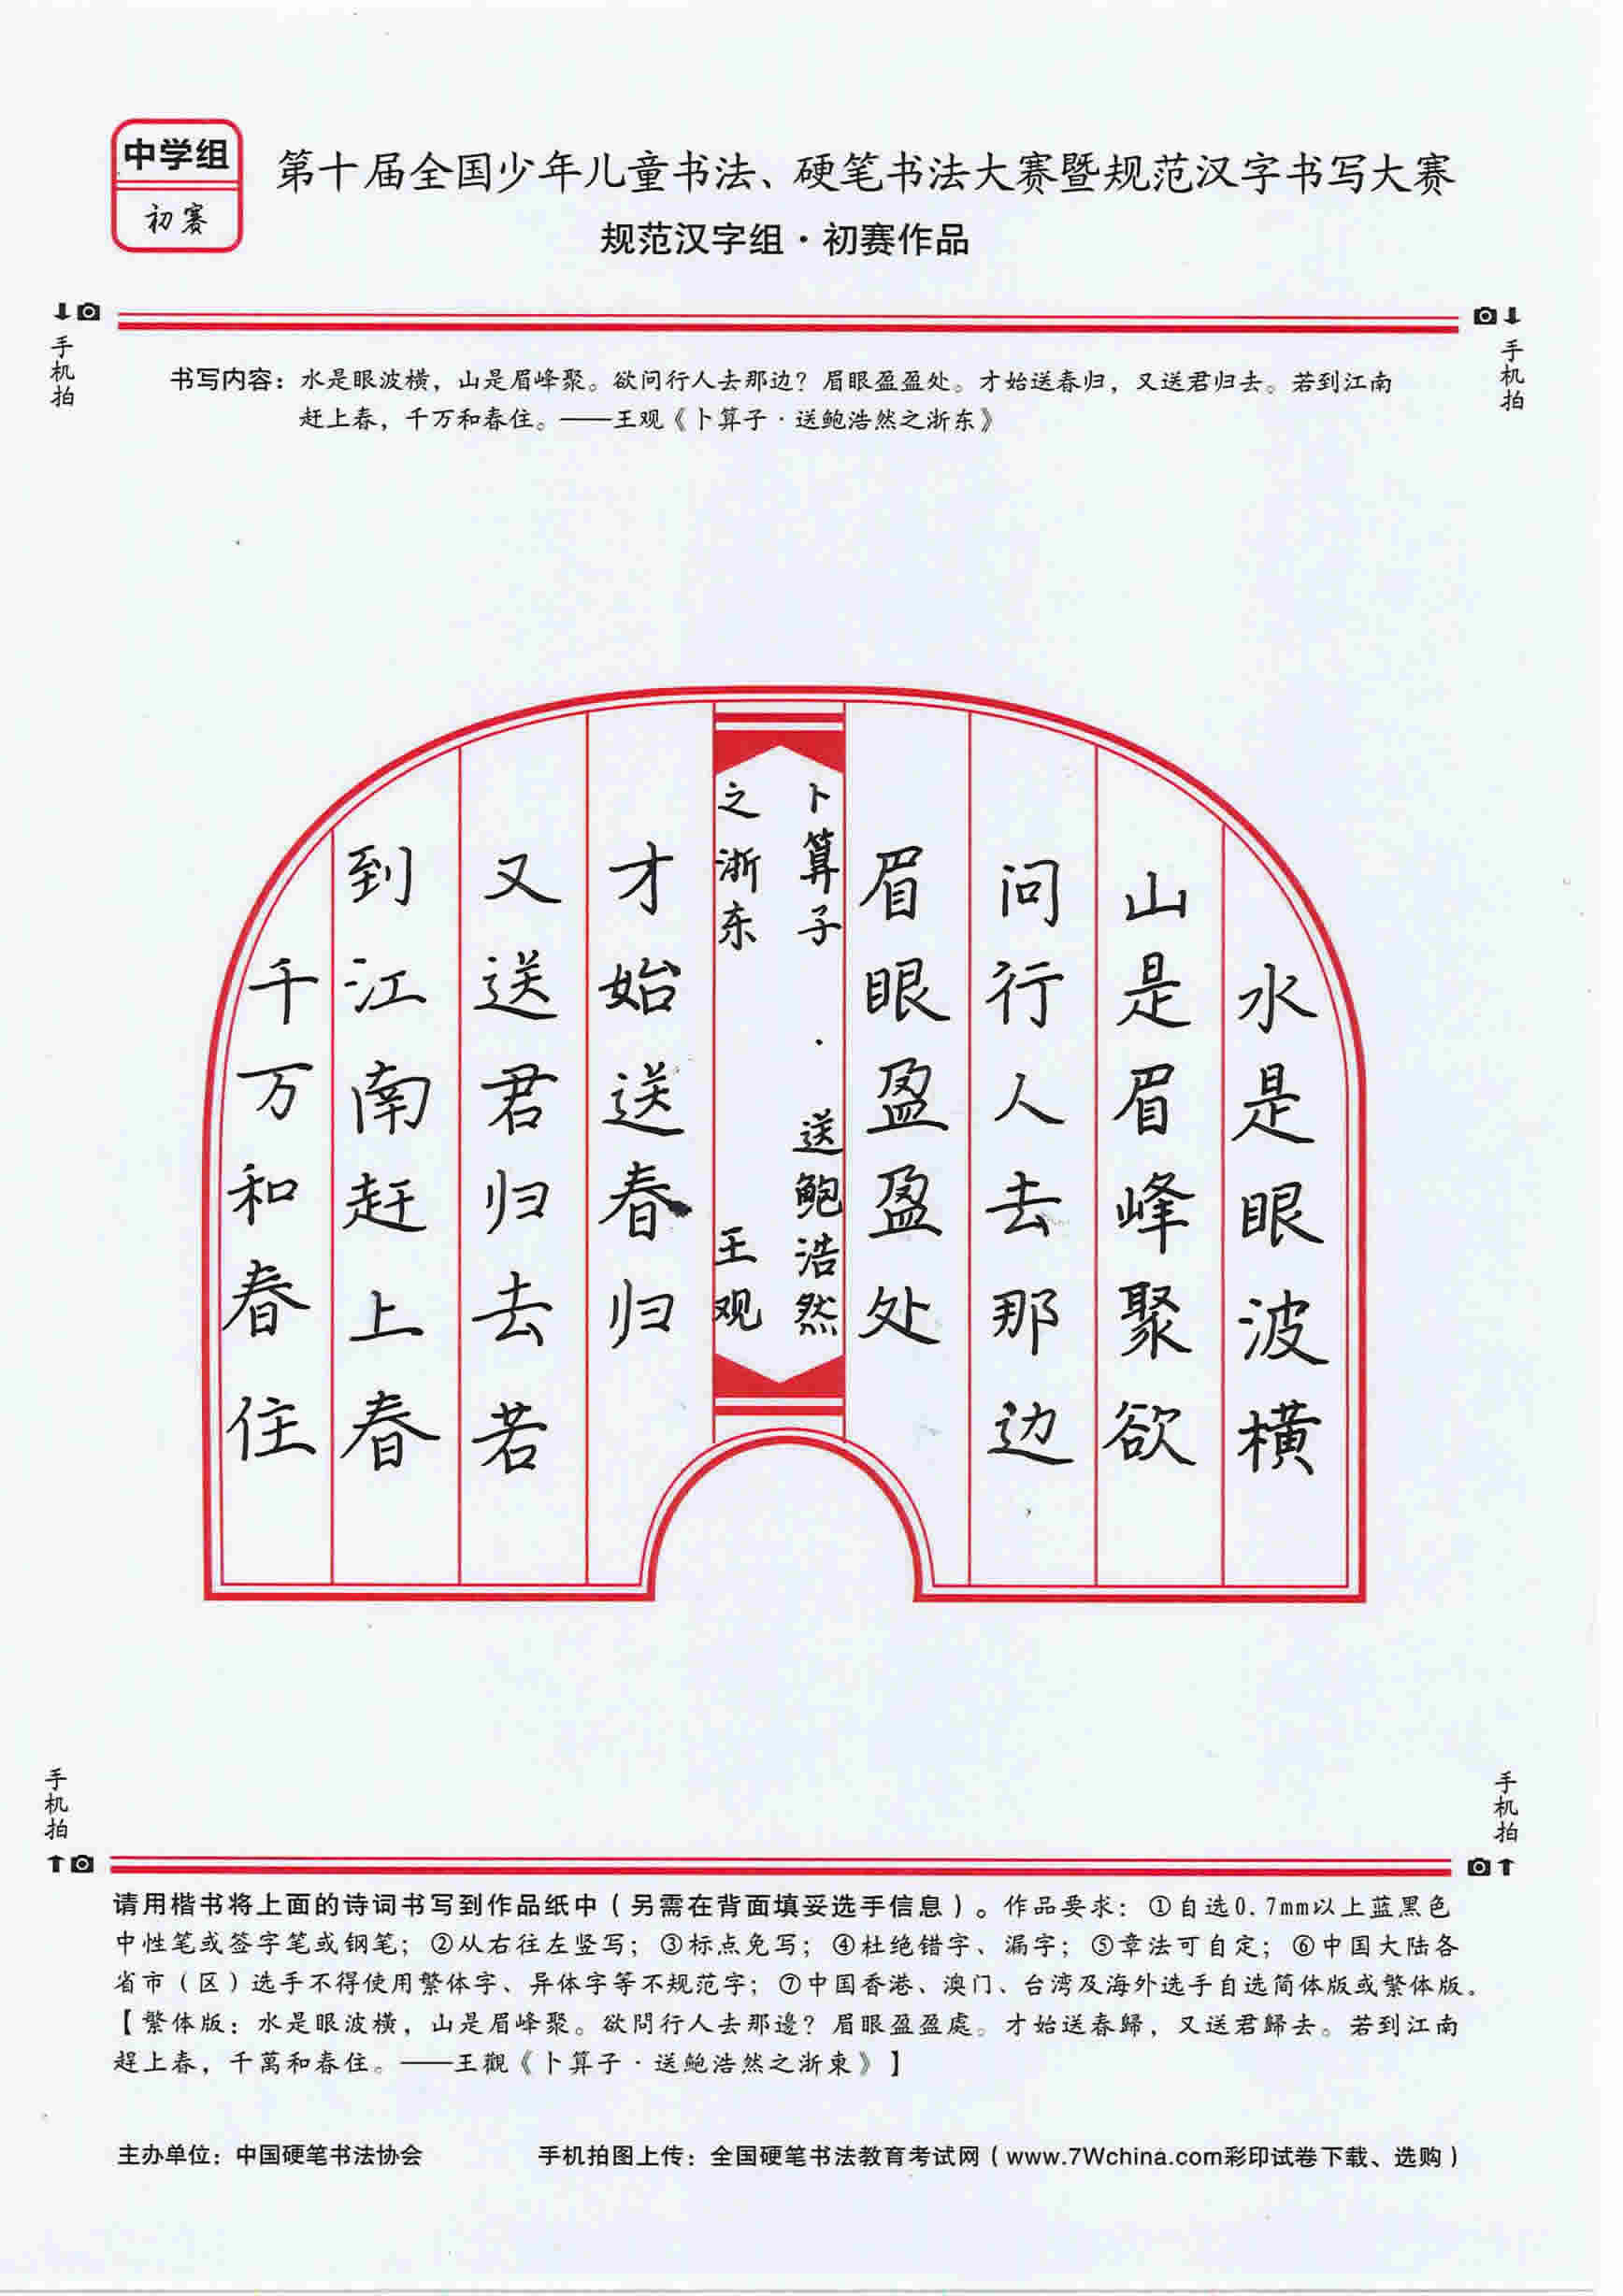 中学组
初赛
第十届全国少年儿童书法、硬笔书法大赛暨规范汉字书写大赛
规范汉字组·初赛作品
手机拍
手机拍
书写内容：水是眼波横，山是眉峰聚。欲问行人去那边？眉眼盈盈处。才始送春归，又送君归去。若到江南
赶上春，千万和春住。——王观《卜算子·送鲍浩然之浙东》
水是眼波横
山是眉峰聚欲
问行人去那边
眉眼盈盈处
卜算子·送鲍浩然
之浙东 王观
才始送春归
又送君归去若
到江南赶上春
千万和春住
手机拍
手机拍
请用楷书将上面的诗词书写到作品纸中（另需在背面填妥选手信息）。作品要求：①自选0.7mm以上蓝黑色
中性笔或签字笔或钢笔；②从右往左竖写；③标点免写；④杜绝错字、漏字；⑤章法可自定；⑥中国大陆各
省市（区）选手不得使用繁体字、异体字等不规范字；⑦中国香港、澳门、台湾及海外选手自选简体版或繁体版。
【繁体版：水是眼波橫，山是眉峰聚。欲問行人去那邊？眉眼盈盈處。才始送春歸，又送君歸去。若到江南
趕上春，千萬和春住。——王觀《卜算子·送鮑浩然之浙東》】
主办单位：中国硬笔书法协会
手机拍图上传：全国硬笔书法教育考试网（www.7Wchina.com彩印试卷下载、选购）